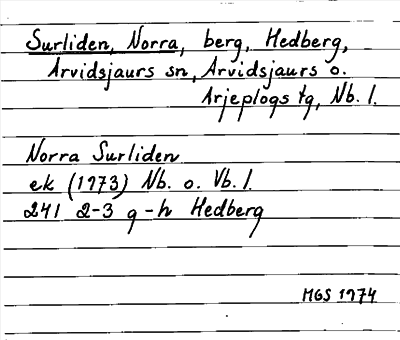 Surliden, Norra, berg, Hedberg,
Arvidsjaurs sn, Arvidsjaurs o.
Arjeplogs tg, Nb. l.
Norra Surliden
ek (1973) Nb. o. Vb. l.
241 2-3 g-h Hedberg
MGS 1974